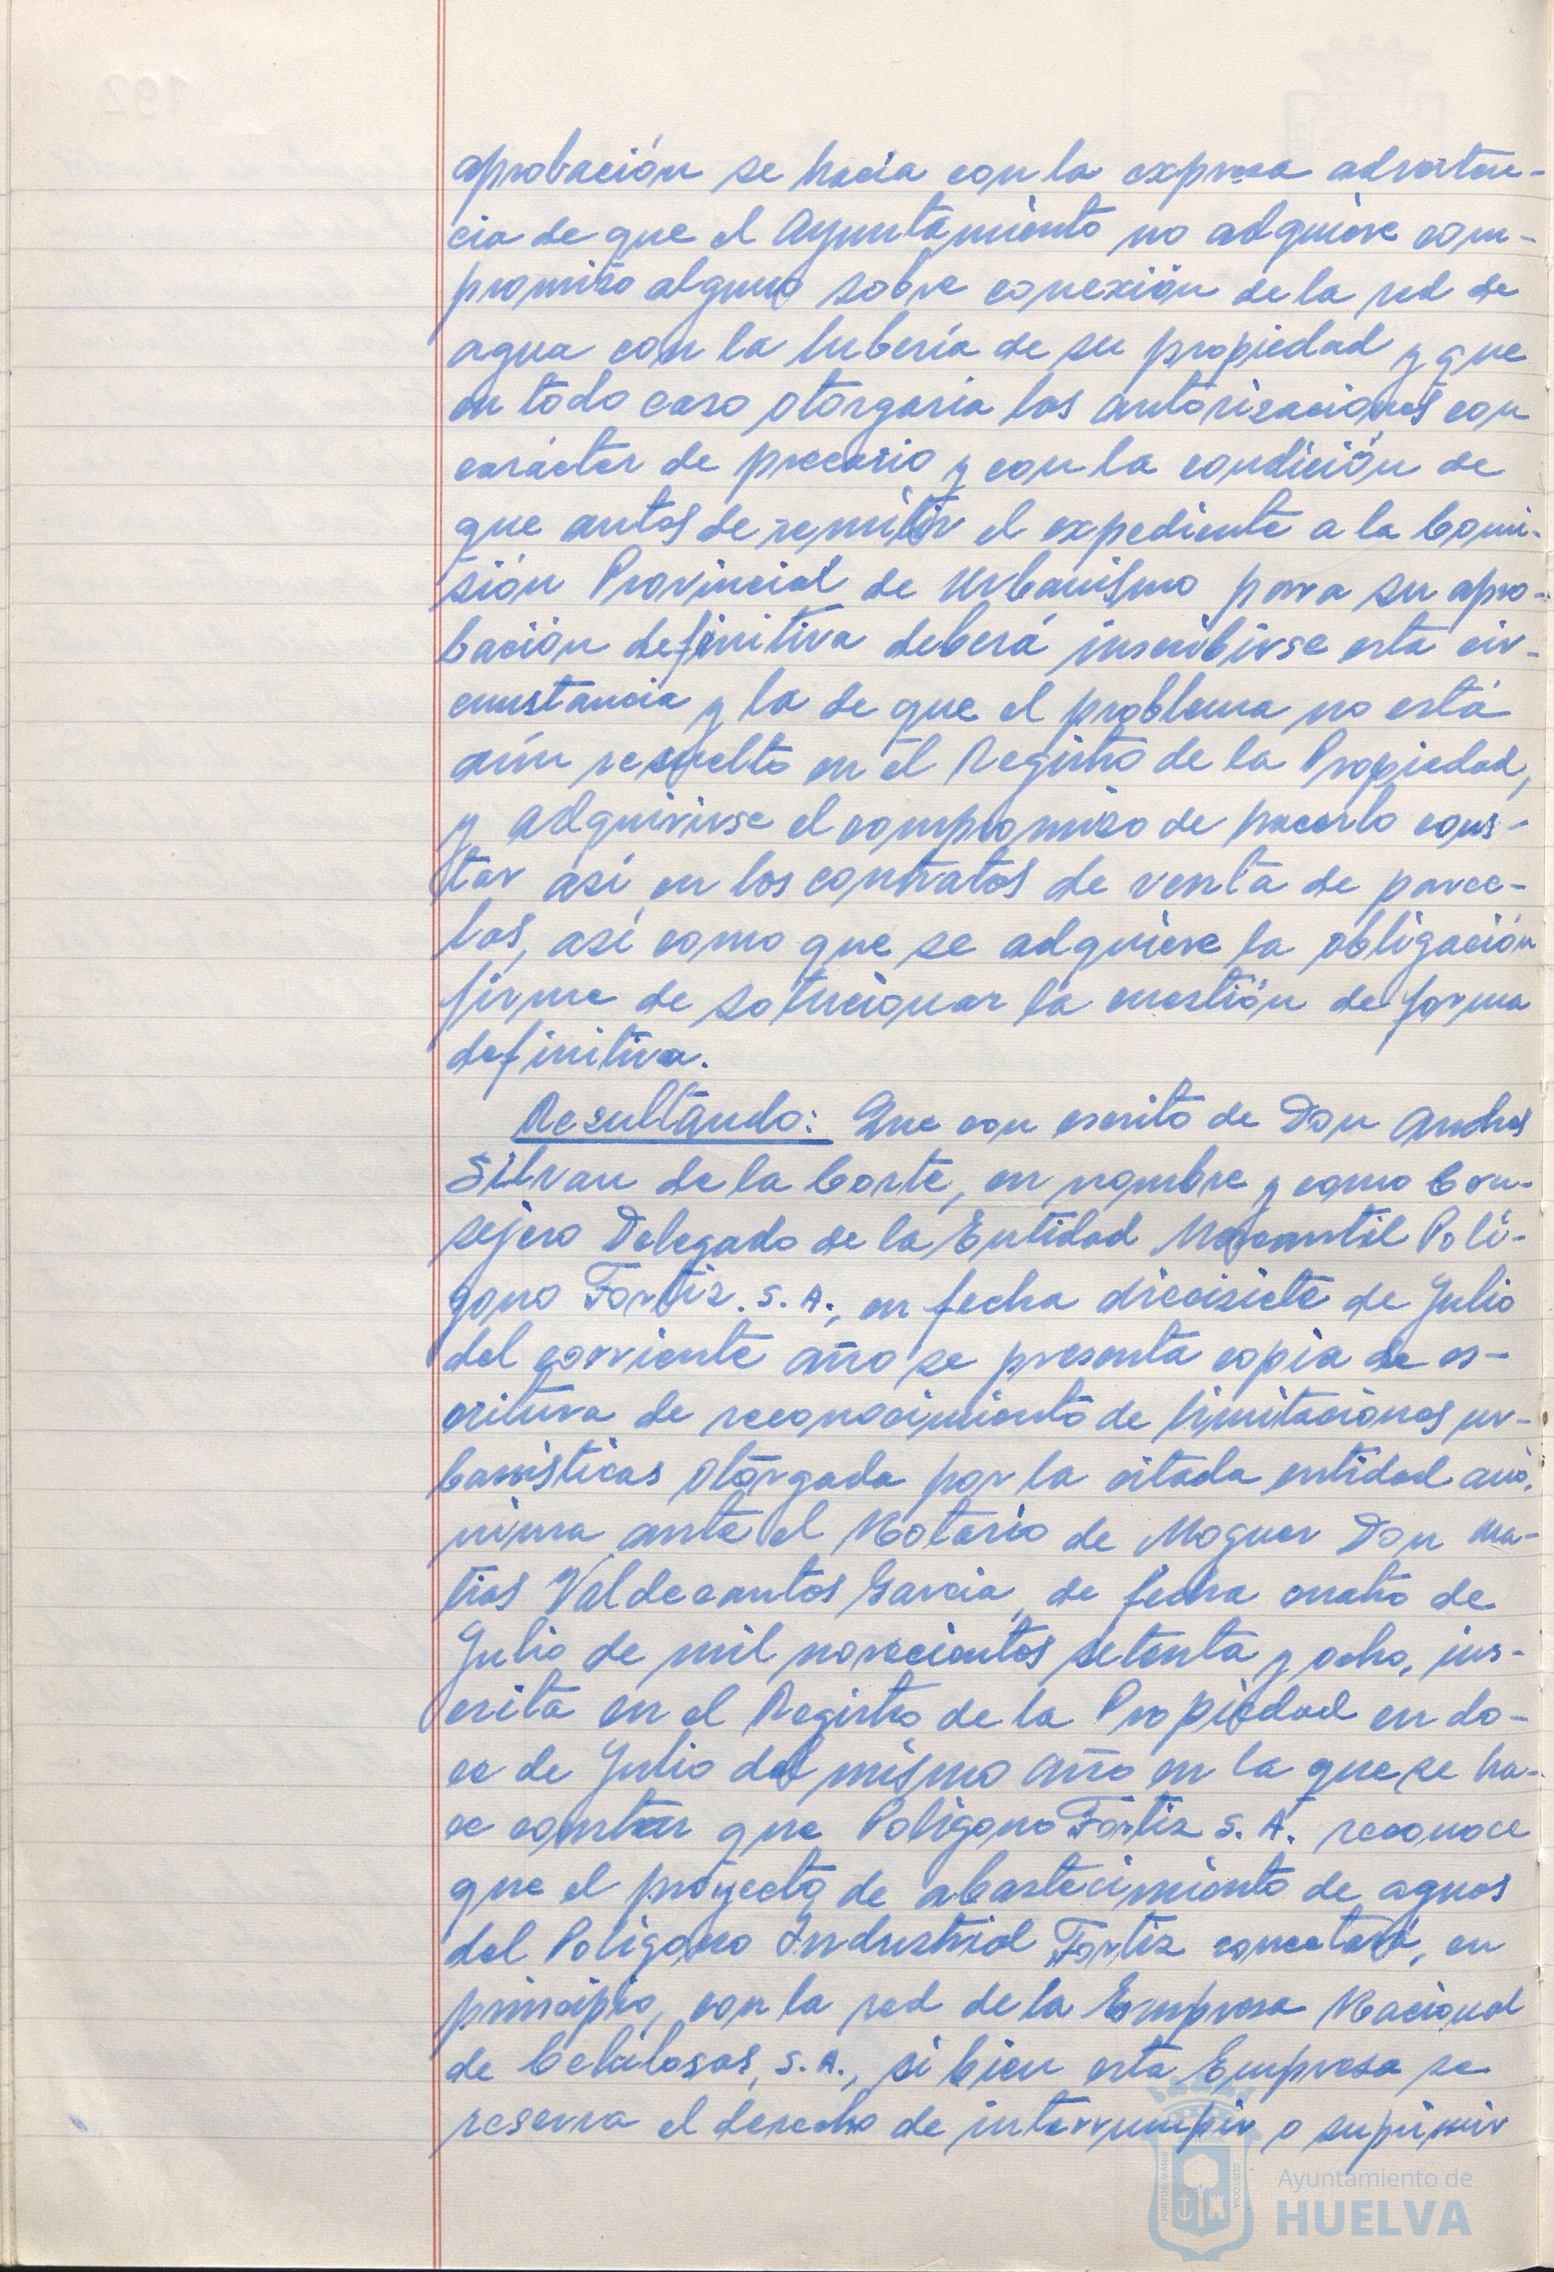 aprobación se hacía con la expresa adverten-
cia de que el Ayuntamiento no adquiere com-
promiso alguno sobre conexión de la red de
agua con la tubería de su propiedad y que
en todo caso otorgaría las autorizaciones con
carácter de precario y con la condición de
que antes de remitir el expediente a la Comi-
sión Provincial de Urbanismo para su apro-
bación definitiva deberá inscribirse esta cir-
cunstancia y la de que el problema no está
aún resuelto en el Registro de la Propiedad,
y adquirirse el compromiso de hacerlo cons-
tar así en los contratos de venta de parce-
las, así como que se adquiere la obligación
firme de solucionar la cuestión de forma
definitiva.
Resultando: Que con escrito de Don Andres
Silvan de la Corte, en nombre y como Con-
sejero Delegado de la Entidad Mercantil Polí-
gono Fortiz. S. A., en fecha diecisiete de Julio
del corriente año se presenta copia de es-
critura de reconocimiento de limitaciones ur-
banísticas otorgada por la citada entidad anó-
nima ante el Notario de Moguer Don Ma-
tias Valdecantos Garcia, de fecha cuatro de
Julio de mil novecientos setenta y ocho, ins-
crita en el Registro de la Propiedad en do-
ce de Julio del mismo año en la que se ha-
ce constar que Poligono Fortiz S. A. reconoce
que el proyecto de abastecimiento de aguas
del Poligono Industrial Fortiz conectará, en
principio, con la red de la Empresa Nacional
de Celulosas, S. A., si bien esta Empresa se
reserva el derecho de interrumpir o suprimir
PORTUS MARIS
CUSTODIA
Ayuntamiento de
HUELVA
192